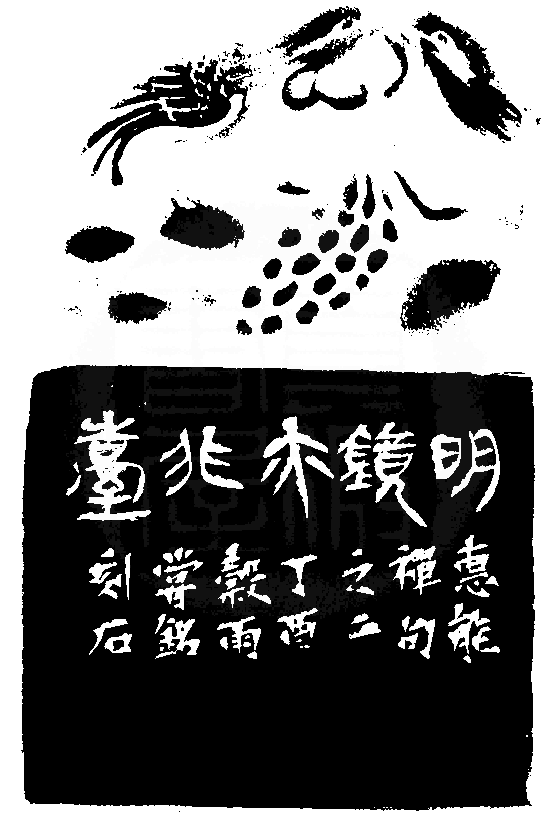 明鏡亦非臺
惠能
禪句
之二
丁酉
穀雨
銘
刻石